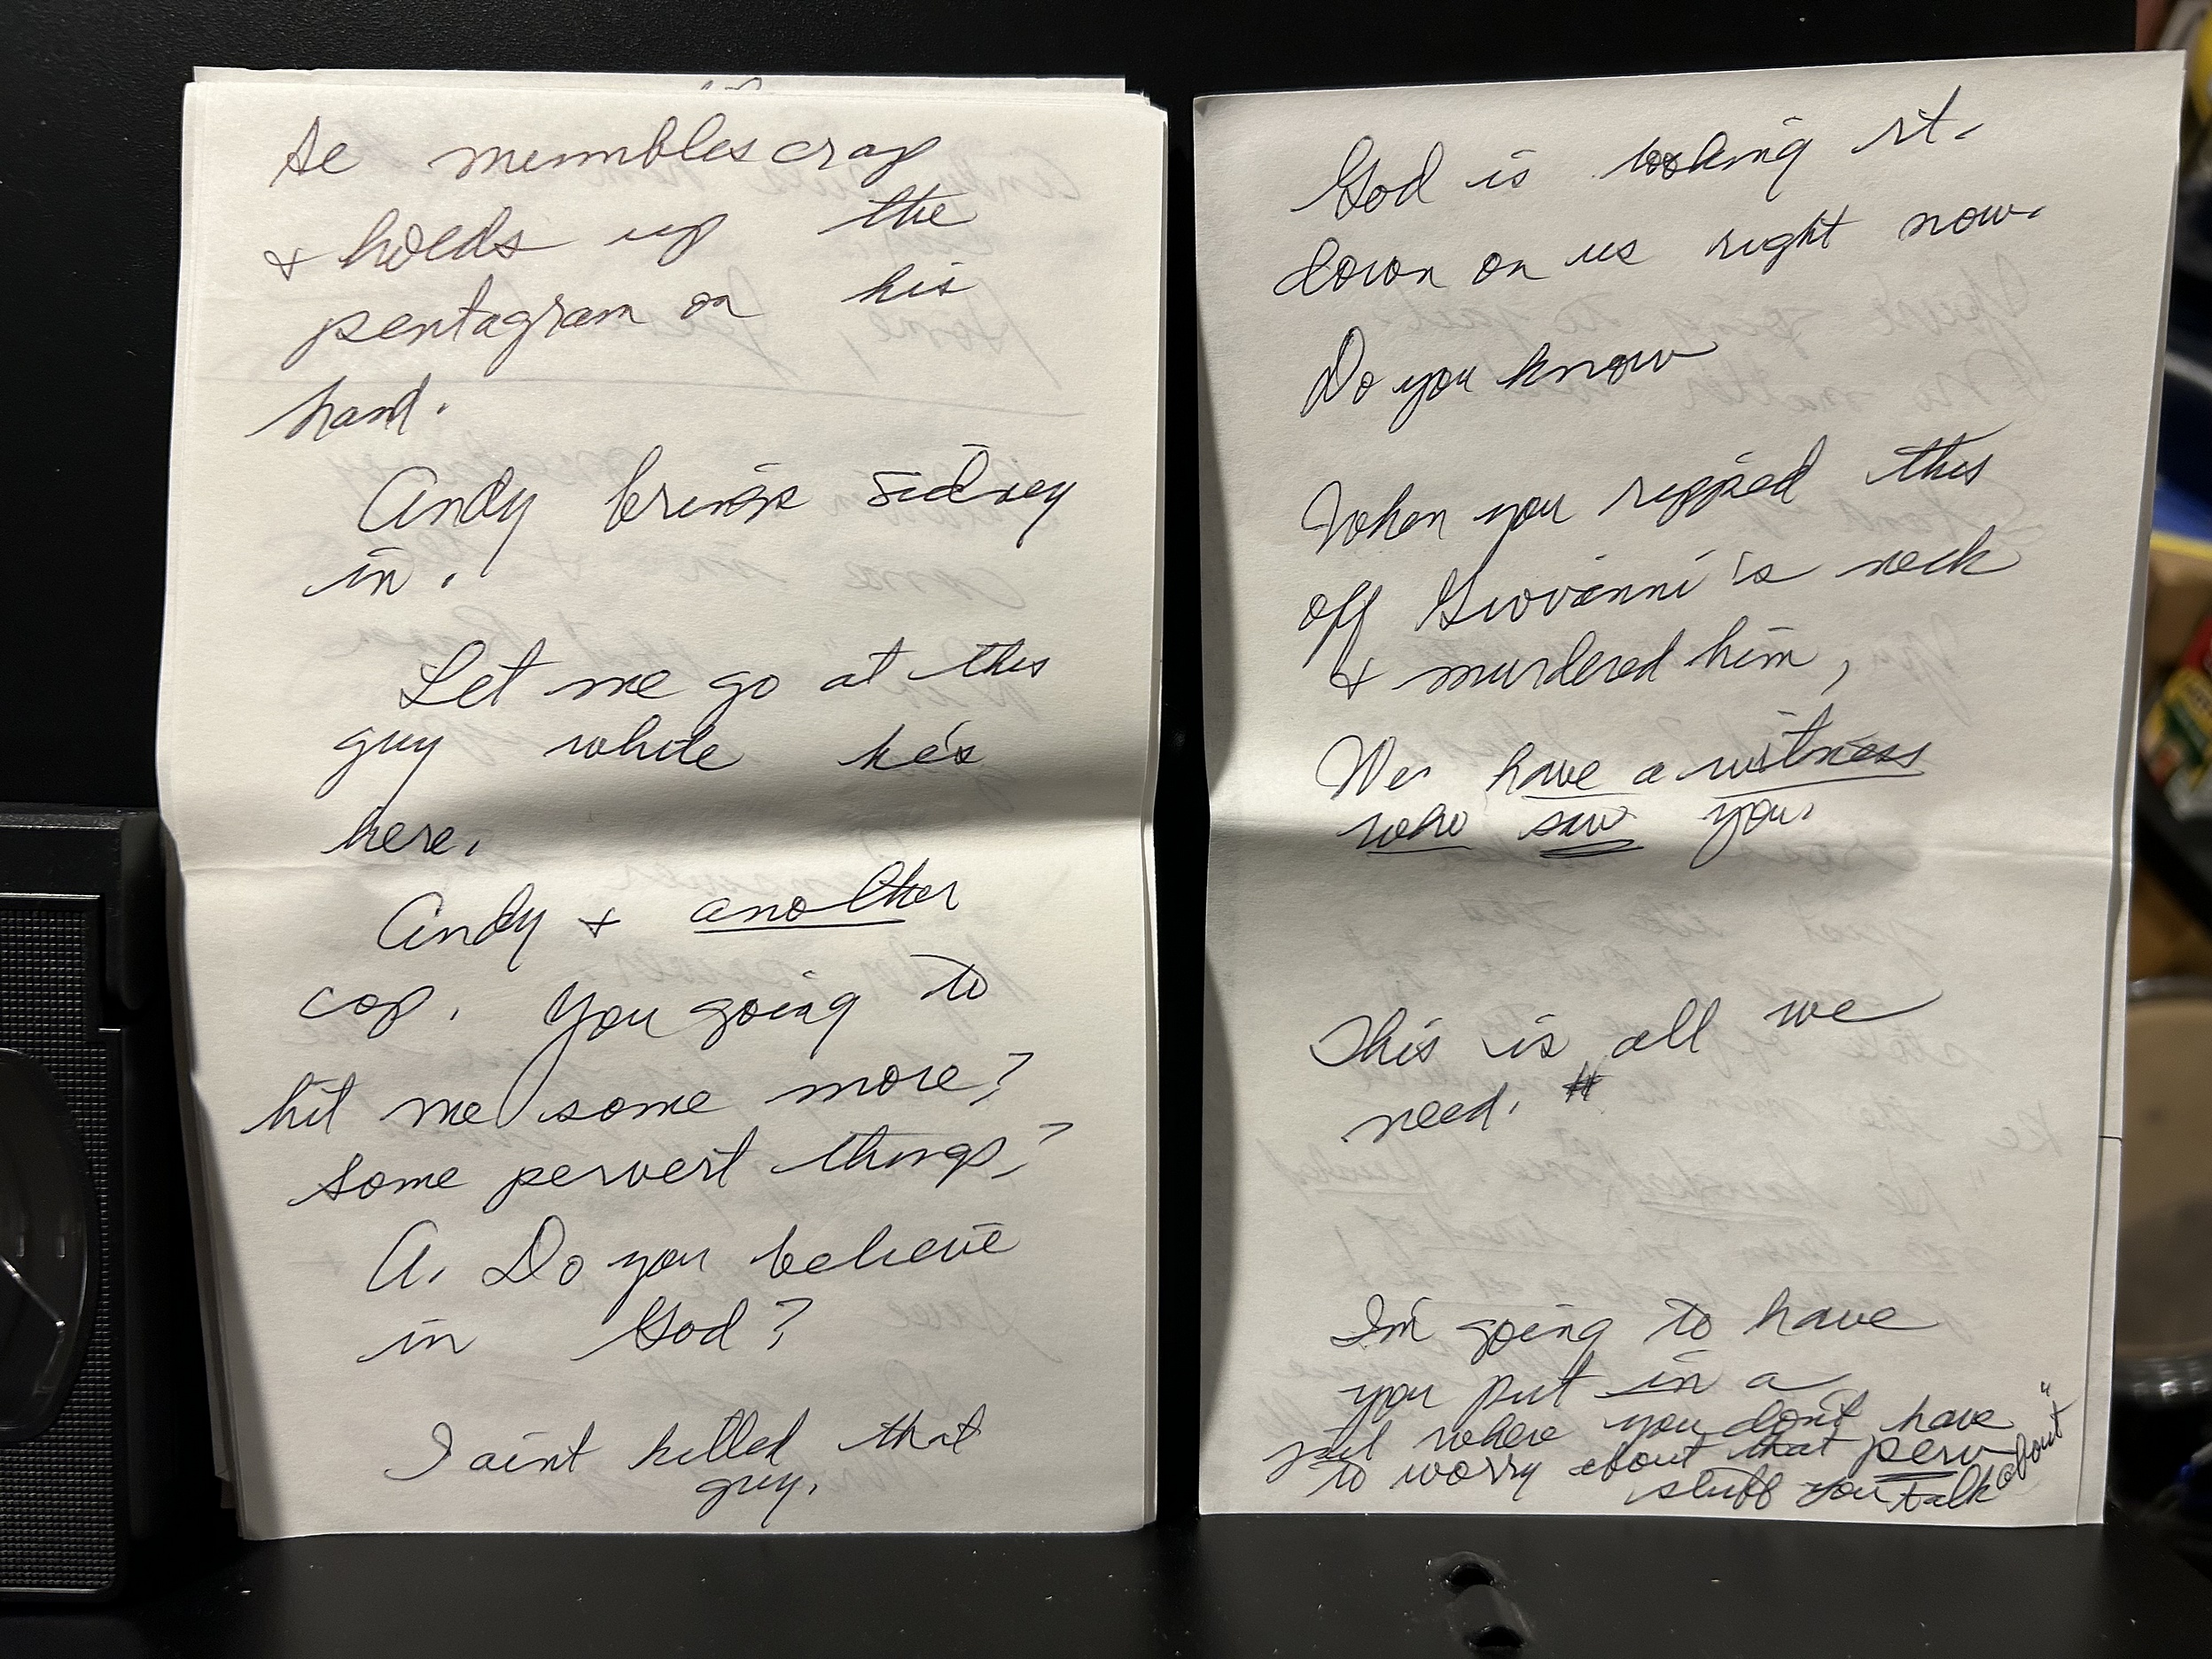 He mumbles crap
& holds up the
pentagram on his
hand.
Andy brings Sidney
in.
Let me go at this
guy while he's
here.
Andy & another
cop. You going to
hit me some more?
Some pervert things?
A. Do you believe
in God?
I aint killed that
guy.
God is looking rt.
down on us right now.
Do you know
When you ripped this
off Giovanni's neck
& murdered him,
We have a witness
who saw you.
This is all we
need.
I'm going to have
you put in a
where you don't have
to worry about that perv
stuff you talk about"